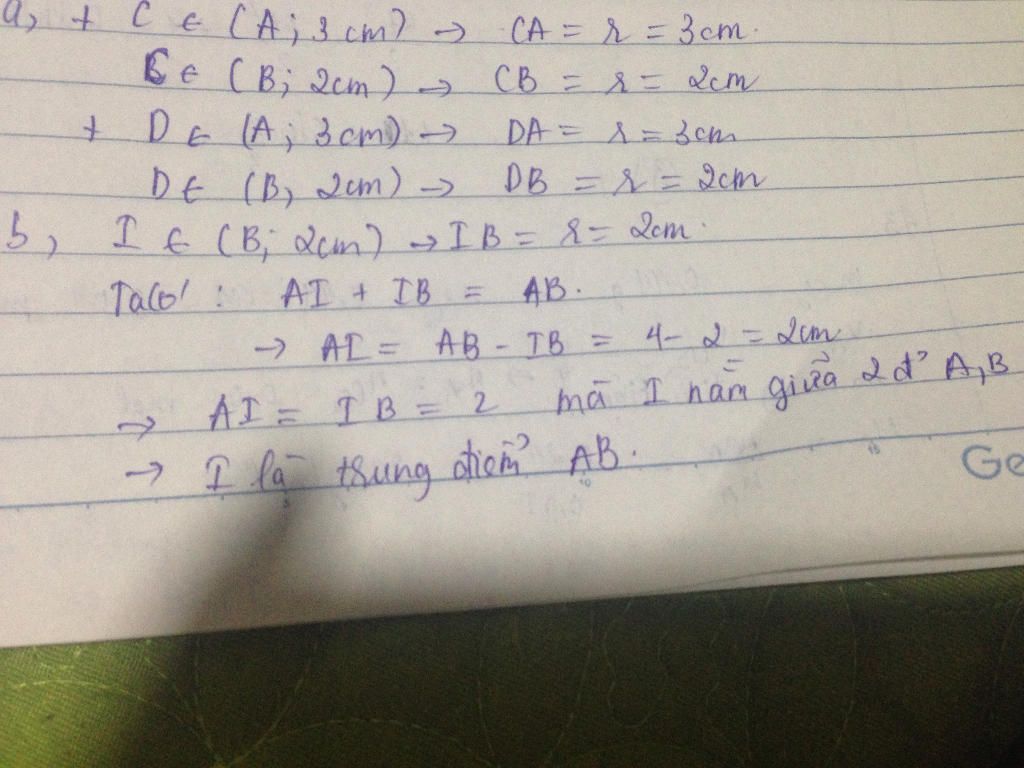 a, + C ∈ (A; 3cm) → CA = r = 3cm.
C ∈ (B; 2cm) → CB = r = 2cm
+ D ∈ (A; 3cm) → DA = r = 3cm
D ∈ (B, 2cm) → DB = r = 2cm
b, I ∈ (B; 2cm) → IB = r = 2cm.
Ta có : AI + IB = AB.
→ AI = AB - IB = 4 - 2 = 2cm
→ AI = IB = 2 mà I nằm giữa 2 đ' A, B
→ I là trung điểm AB.
Ge